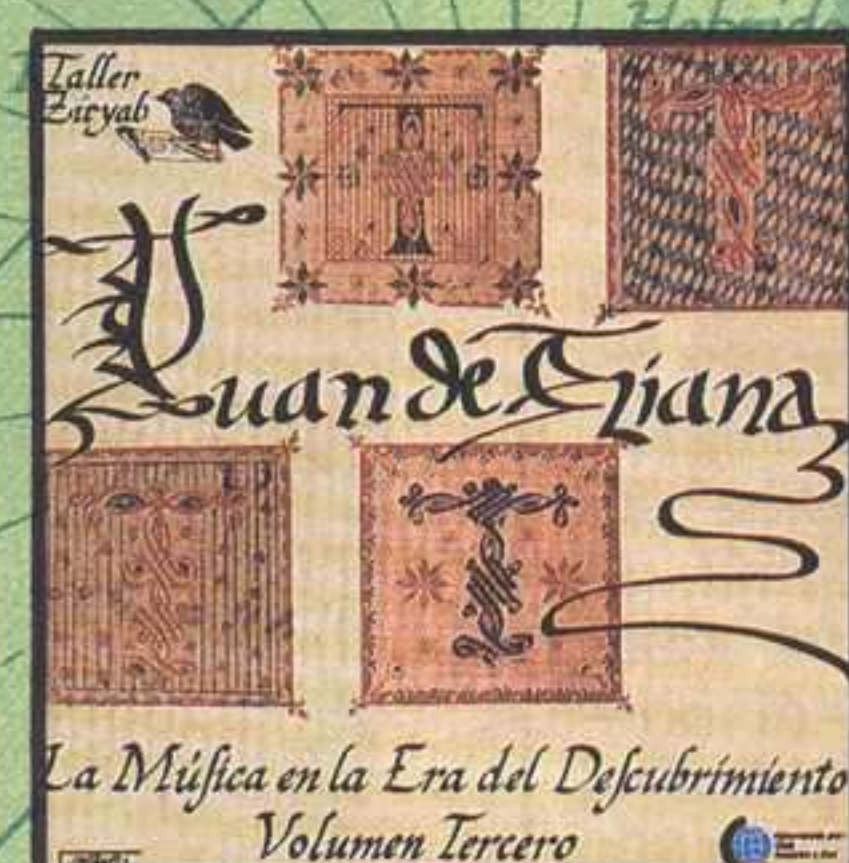 Taller
Ziryab
Juan de Triana
La Múſica en la Era del Deſcubrimiento
Volumen Tercero